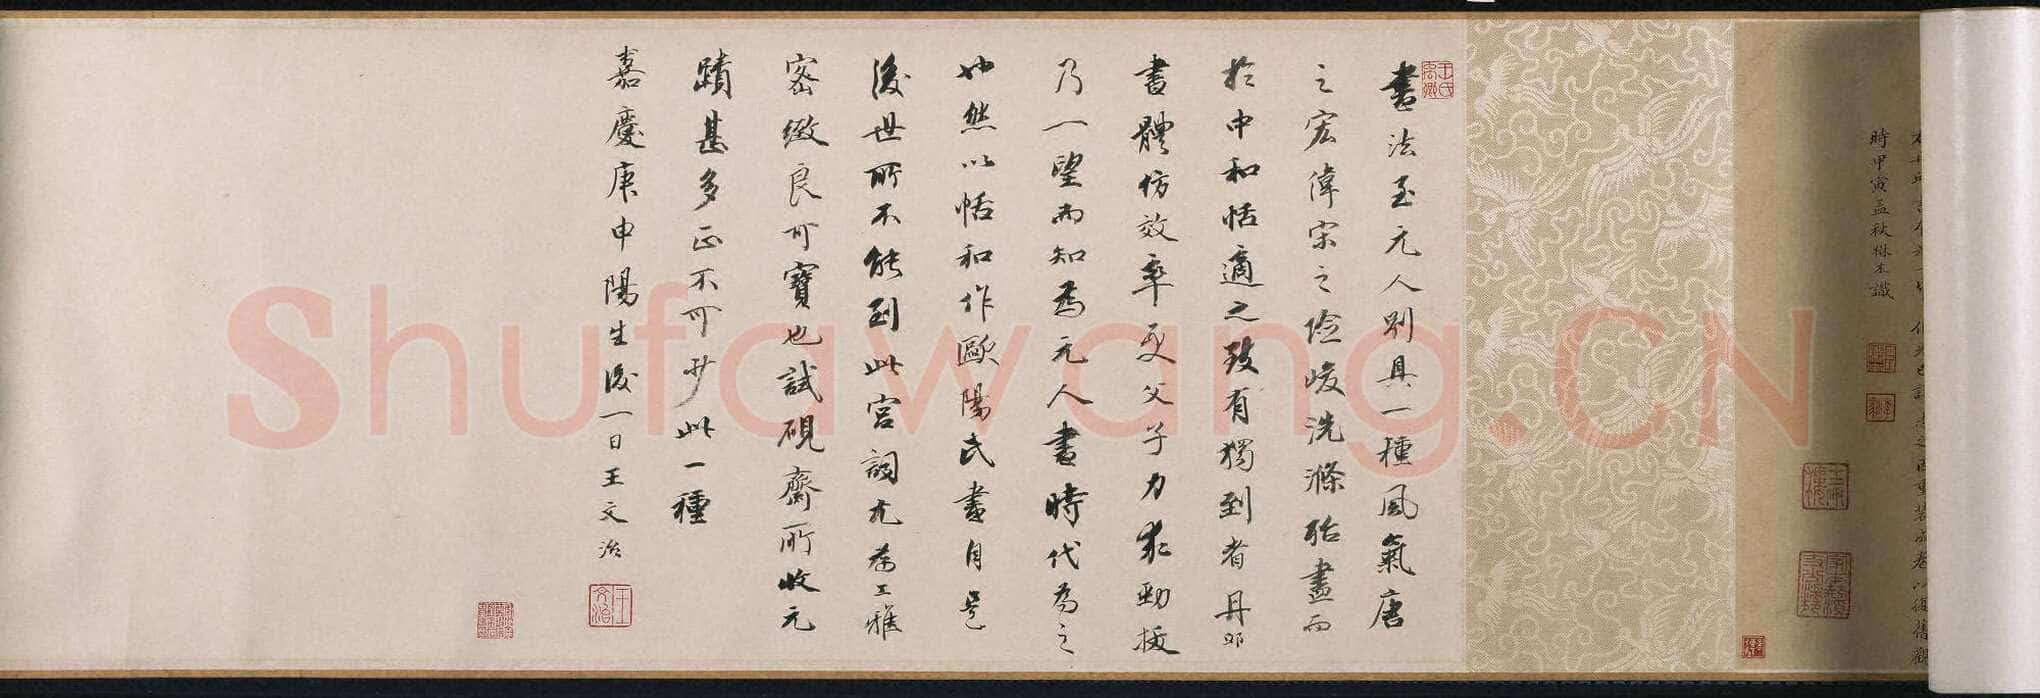 時甲寅孟秋楙本識
書法至元人別具一種風氣唐
之宏偉宋之險峻洗滌殆盡而
於中和恬適之致有獨到者丹邱
書體仿效率更父子力求勁拔
乃一望而知為元人書時代為之
也然以恬和作歐陽氏書自是
後世所不能到此宮詞尤為工雅
密緻良可寶也試硯齋所收元
蹟甚多正不可少此一種
嘉慶庚申陽生後一日王文治
王氏禹卿
王文治
Shufawang.CN